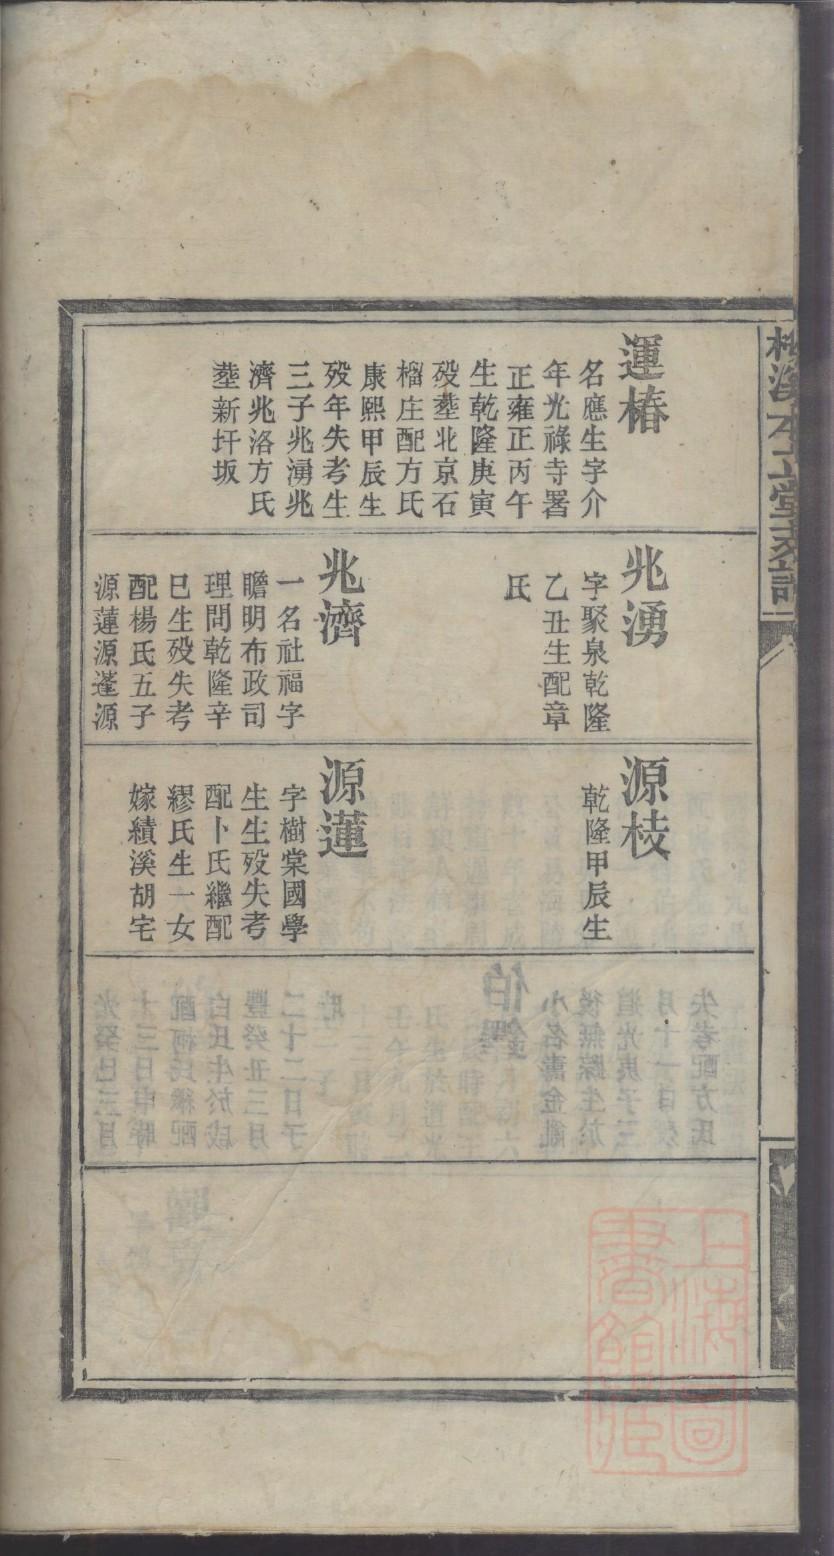 運椿
名應生字介
年光祿寺署
正雍正丙午
生乾隆庚寅
殁塟北京石
榴庄配方氏
康熙甲辰生
殁年失考生
三子兆湧兆
濟兆洛方氏
塟新圩坂
兆湧
字聚泉乾隆
乙丑生配章
氏
兆濟
一名社福字
瞻明布政司
理問乾隆辛
巳生殁失考
配楊氏五子
源蓮源蓬源
源枝
乾隆甲辰生
源蓮
字樹棠國學
生生殁失考
配卜氏繼配
繆氏生一女
嫁績溪胡宅
上海圖
書館藏